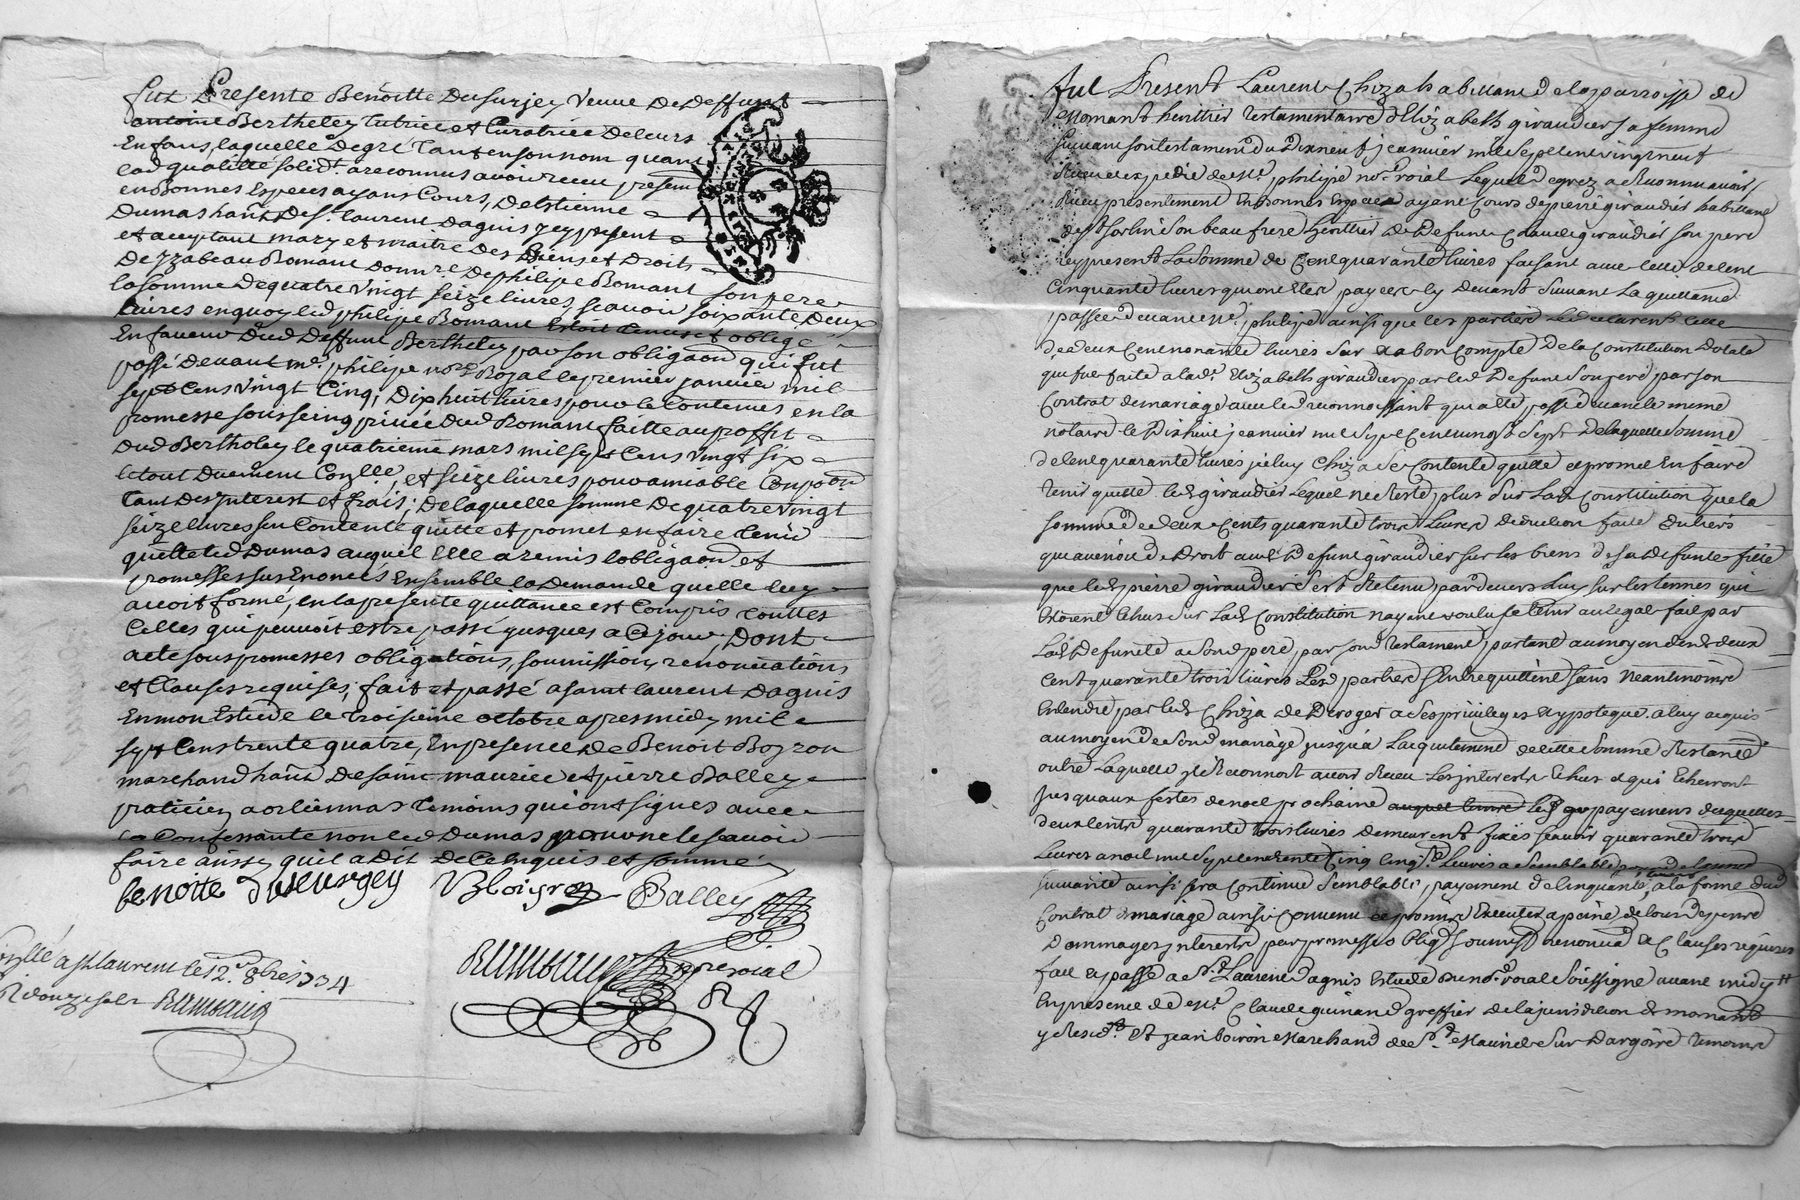 fut Presente Benoitte Dusurjey veuve De Deffunt
antoine Bertheley tutrice et Curatrice De leurs
Enfans, laquelle De gré tant en son nom quant
lad qualitté solidt. a reconnus avoir receu presem
en Bonnes Especes ayans Cours, D'estienne
Dumas hant De st. laurent Dagnis y present
et acceptant mary et maitre des Biens et Droits
De yzabeau Romant Donnre De philipe Romant son pere
la somme De quatre vingt seize livres, scavoir soixante Deux
livres en quoy led philipe Romant Estoit tenu et obligé
En faveur Dud Deffunt Bertheley par son obligaon qui fut
passé Devant me. philipe nore Royal le premier janvier mil
sept Cens vingt Cinq, Dixhuit livres pour le Contenus en la
promesse sous seing privée Dud Romant faitte au proffit
Dud Bertholey le quatrieme mars mil sept Cens vingt six
le tout Duement Conllé, et seize livres pour amiable Compoon
tant Des Interest et frais; De laquelle somme De quatre vingt
seize livres sen Contente quitte et promet en faire tenir
quitte led Dumas auquel Elle a remis l'obligaon et
promesse sus Enoncés Ensemble la Demande quelle luy
avoit formé, en la presente quittance est Compris touttes
Celles qui peuvoit estre passé jusques a Ce jour, Dont
acte sous promesses obligations, soumissions, renonciations
et Clauses requises; fait et passé a saint laurent Dagnis
En mon Estude le troisieme octobre apres midy mil
sept Cens trente quatre, En presence De Benoit Boyron
marchand hant De saint maurice et pierre Balley
praticien a orliennas temoins qui ont signes avec
la Confessante non led Dumas pour ne le scavoir
faire ainsy qu'il a Dit De Ce Enquis et sommé
benoitte duseurgey Bboiyron Balley
Rimouin nre roial
Conllé a st laurent le 12e. 8bre 1734
R douze sols Rimouin
fut Present Laurent Chiza habittant de la parroisse de
Mornant herittier testamentaire d'Elizabeth giraudier sa femme
suivant son testament du Dixneuf jeanvier mil sept cent vingt neuf
Receu et expedié de Me. philipe nore. roial Lequel de grez a Reconnu avoir
Receu presentement En bonnes Especes ayant Cours de pierre giraudier habittant
de st Son beau frere heritier De Defunt Claude giraudier son pere
icy present La Somme de Cent quarante livres faisant avec celle de cent
Cinquante livres qui ont Eté payée cy Devant Suivant la quittance
passée Devant Me. philipe ainsi que les parties celle
de deux Cent nonante livres Sur Et a bon Compte De la Constitution Dotale
que fut faite a lade. Elizabeth giraudier par led Defunt Son pere, par son
Contrat de mariage avec led reconnoissant qui a été passé devant le meme
notaire le Dixhuit jeanvier mil Sept Cent vingt Sept De laquelle Somme
de Cent quarante livres iceluy Chiza Se Contente quitte et promet En faire
tenir quitte led giraudier Lequel ne Reste plus Sur Lad Constitution que la
somme de deux Cents quarante trois livres deduction faite du tiers
qu'avenoit de Droit aud Defunt giraudier sur les biens de sa Defunte fille
que led pierre giraudier S'est Retenu pardevers Luy sur les termes qui
Etoient Echus sur lad Constitution n'ayant voulu se tenir au legat fait par
Lad Defunte a Sond pere, par son testament, partant au moyen desd deux
Cent quarante trois livres Les parties S'entrequittent Sans neantmoins
Entendre par led Chiza De Deroger a Ses privileges et ypoteque a luy acquis
au moyen de Sond mariage jusqu'a L'acquittement de cette Somme Restante
outre laquelle il Reconnoit avoir Receu Les interests Echus et qui Echeront
jusquaux festes de noel prochaine les payemens desquelles
deux Cents quarante trois livres Demeurent fixés scavoir quarante trois
Livres a noel mil Sept cent trente Cinq Livres a Semblable
suivante ainsi sera Continué Semblable payement de Cinquante a la forme dud
Contrat de mariage ainsi Convenu et promis Executer a peine de tous depens
Dommages interests par promesses oblig Soumiss renonciaon et Clauses requises
fait Et passé a st. Laurent d'agnis Estude du nore. roial Soussigné avant midy
En presence de Me. Claude guinand greffier de la jurisdiction de mornant
y Residt. Et jean boiron Marchand de st. Maurice Sur Dargoire temoins